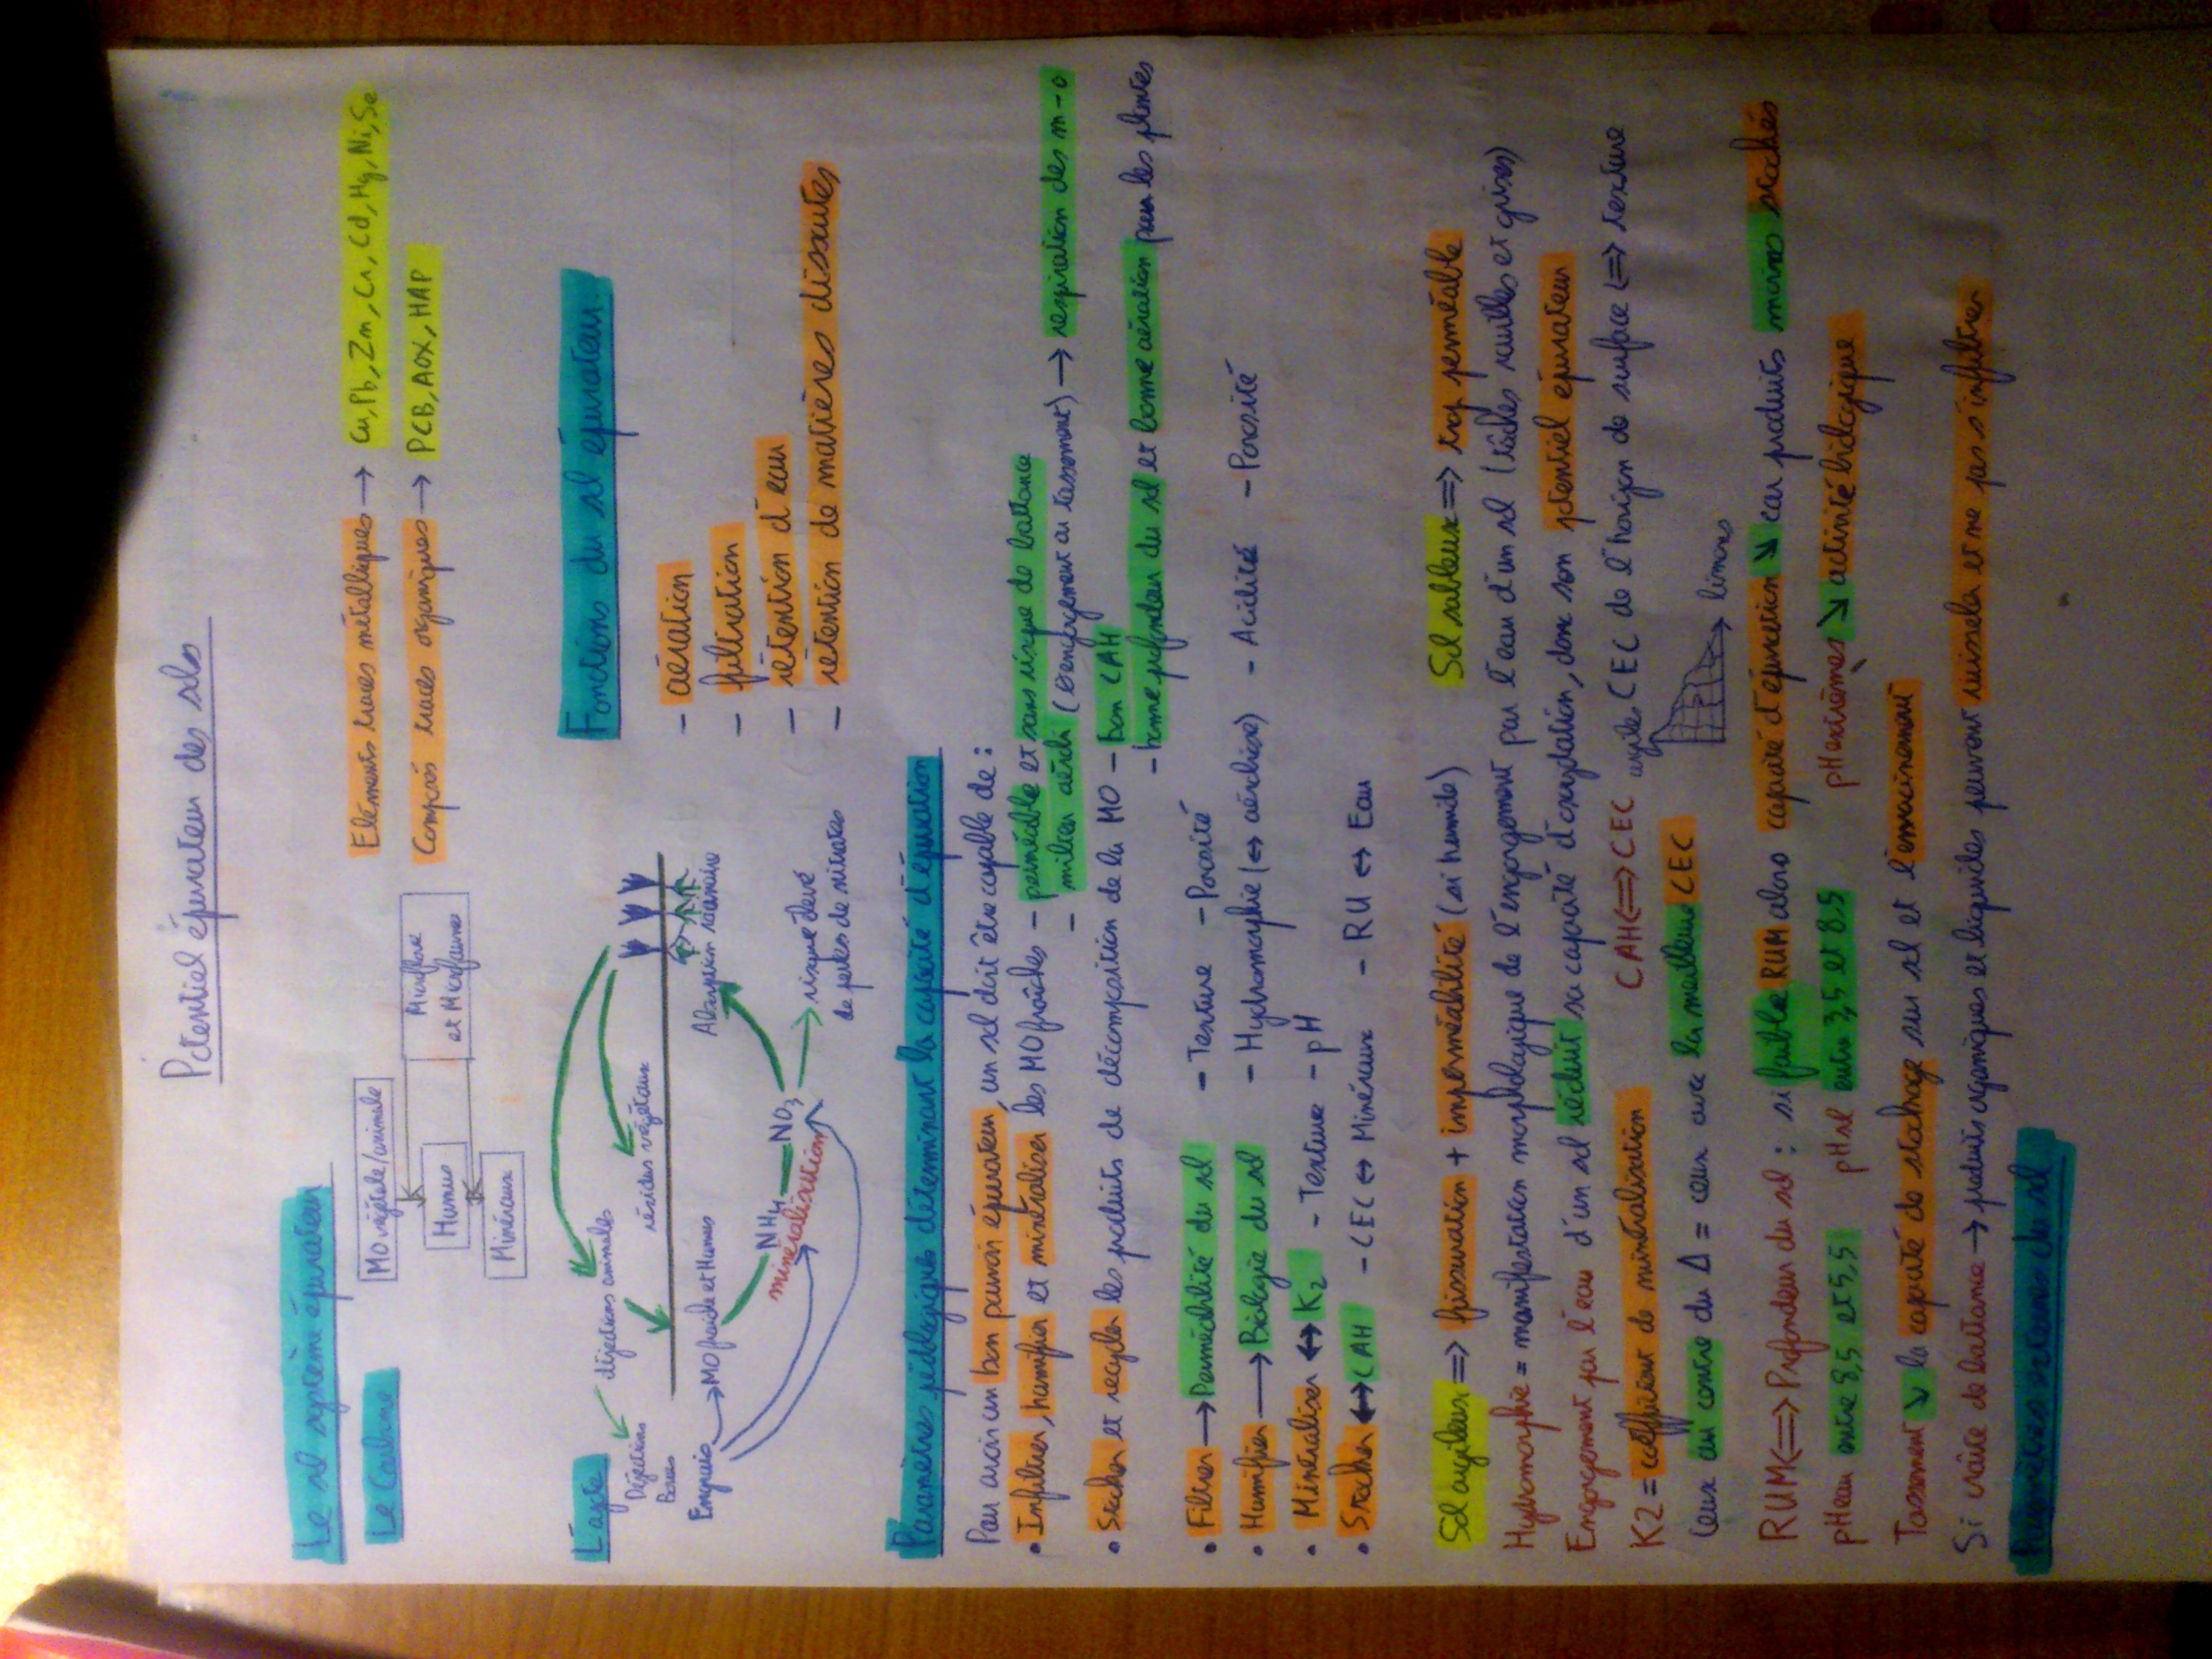 Potentiel épurateur des sols
Le sol système épurateur
Le Carbone
MO végétale/animale
Humus
Minéraux
Microflore
et Microfaune
Eléments traces métalliques → Cu, Pb, Zn, Cr, Cd, Hg, Ni, Se
Composés traces organiques → PCB, AOX, HAP
L'azote
déjections animales
Déjections
Boues
Engrais
résidus végétaux
MO fraîche et Humus
Absorption racinaire
NH4
NO3
minéralisation
risque élevé
de pertes de nitrates
Fonctions du sol épurateur
- aération
- filtration
- rétention d'eau
- rétention de matières dissoutes
Paramètres pédologiques déterminant la capacité d'épuration
Pour avoir un bon pouvoir épurateur, un sol doit être capable de :
• Infiltrer, humifier et minéraliser les MO fraîches - perméable et sans risque de battance
- milieu aérobi (⊖ engorgement ou tassement) → respiration des m-o
• Stocker et recycler les produits de décomposition de la MO - bon CAH
- bonne profondeur du sol et bonne aération pour les plantes
• Filtrer → Perméabilité du sol - Texture - Porosité
• Humifier → Biologie du sol - Hydromorphie (↔ aérobiose) - Acidité - Porosité
• Minéraliser ↔ K2 - Texture - pH
• Stocker ↔ CAH - CEC ↔ Minéraux - RU ↔ Eau
Sol argileux => fissuration + imperméabilité (si humide)
Sol sableux => trop perméable
Hydromorphie = manifestation morphologique de l'engorgement par l'eau d'un sol (tâches rouilles et grises)
Engorgement par l'eau d'un sol réduit sa capacité d'oxydation, donc son potentiel épurateur
K2 = coefficient de minéralisation
CAH <=> CEC
argiles
CEC de l'horizon de surface <=> texture
limons
Ceux au centre du Δ = ceux avec la meilleure CEC
RUM <=> Profondeur du sol : si faible RUM alors capacité d'épuration ↘ car produits moins stockés
pH eau entre 8,5 et 5,5
pH sol entre 3,5 et 8,5
pH extrêmes ↘ activité biologique
Tassement ↘ la capacité de stockage sur sol et l'enracinement
Si croûte de battance → produits organiques et liquides peuvent ruisseler et ne pas s'infiltrer
Paramètres externes du sol